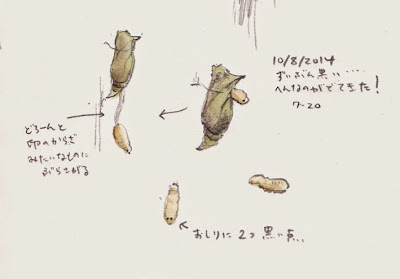 10/8/2014
ずいぶん黒い‥‥
へんなのがでてきた!
7-20
どろーんと
卵のからざ
みたいなものに
ぶらさがる
おしりに2つ黒い点、、